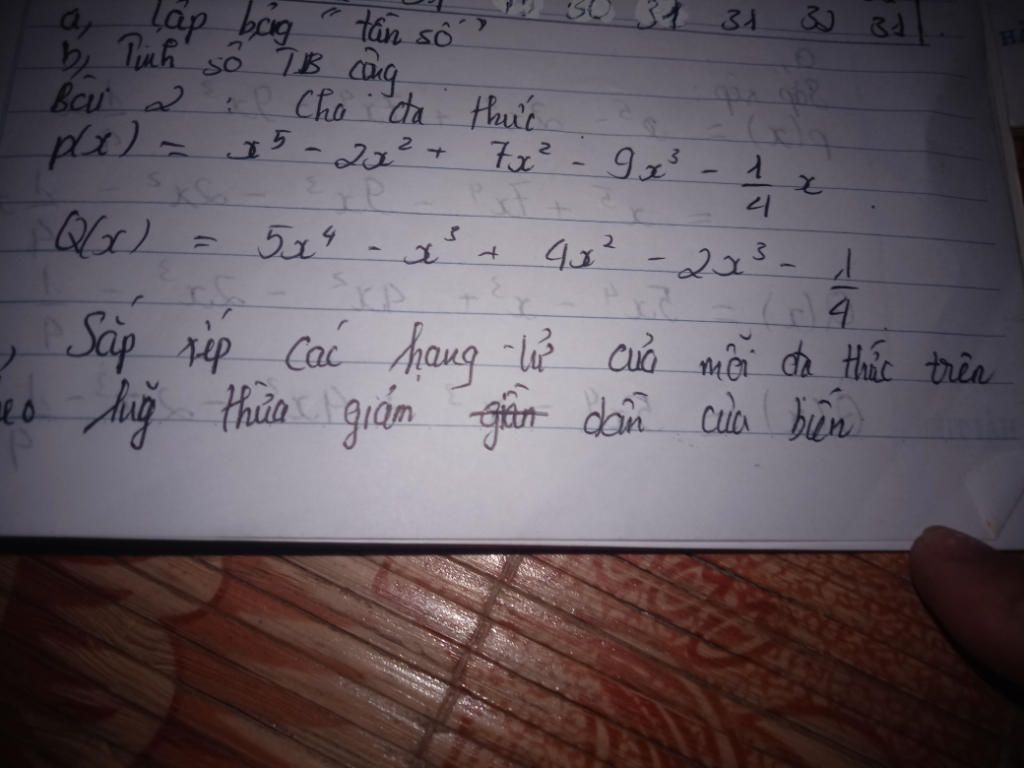 30 31 31 30 31
a, Lập bảng "tần số"
b, Tính số TB cộng
Bài 2 : Cho đa thức
p(x) = x⁵ - 2x² + 7x² - 9x³ - 1/4 x
Q(x) = 5x⁴ - x³ + 4x² - 2x³ - 1/4
, Sắp xếp các hạng tử của mỗi đa thức trên
eo luỹ thừa giảm giần dần của biến